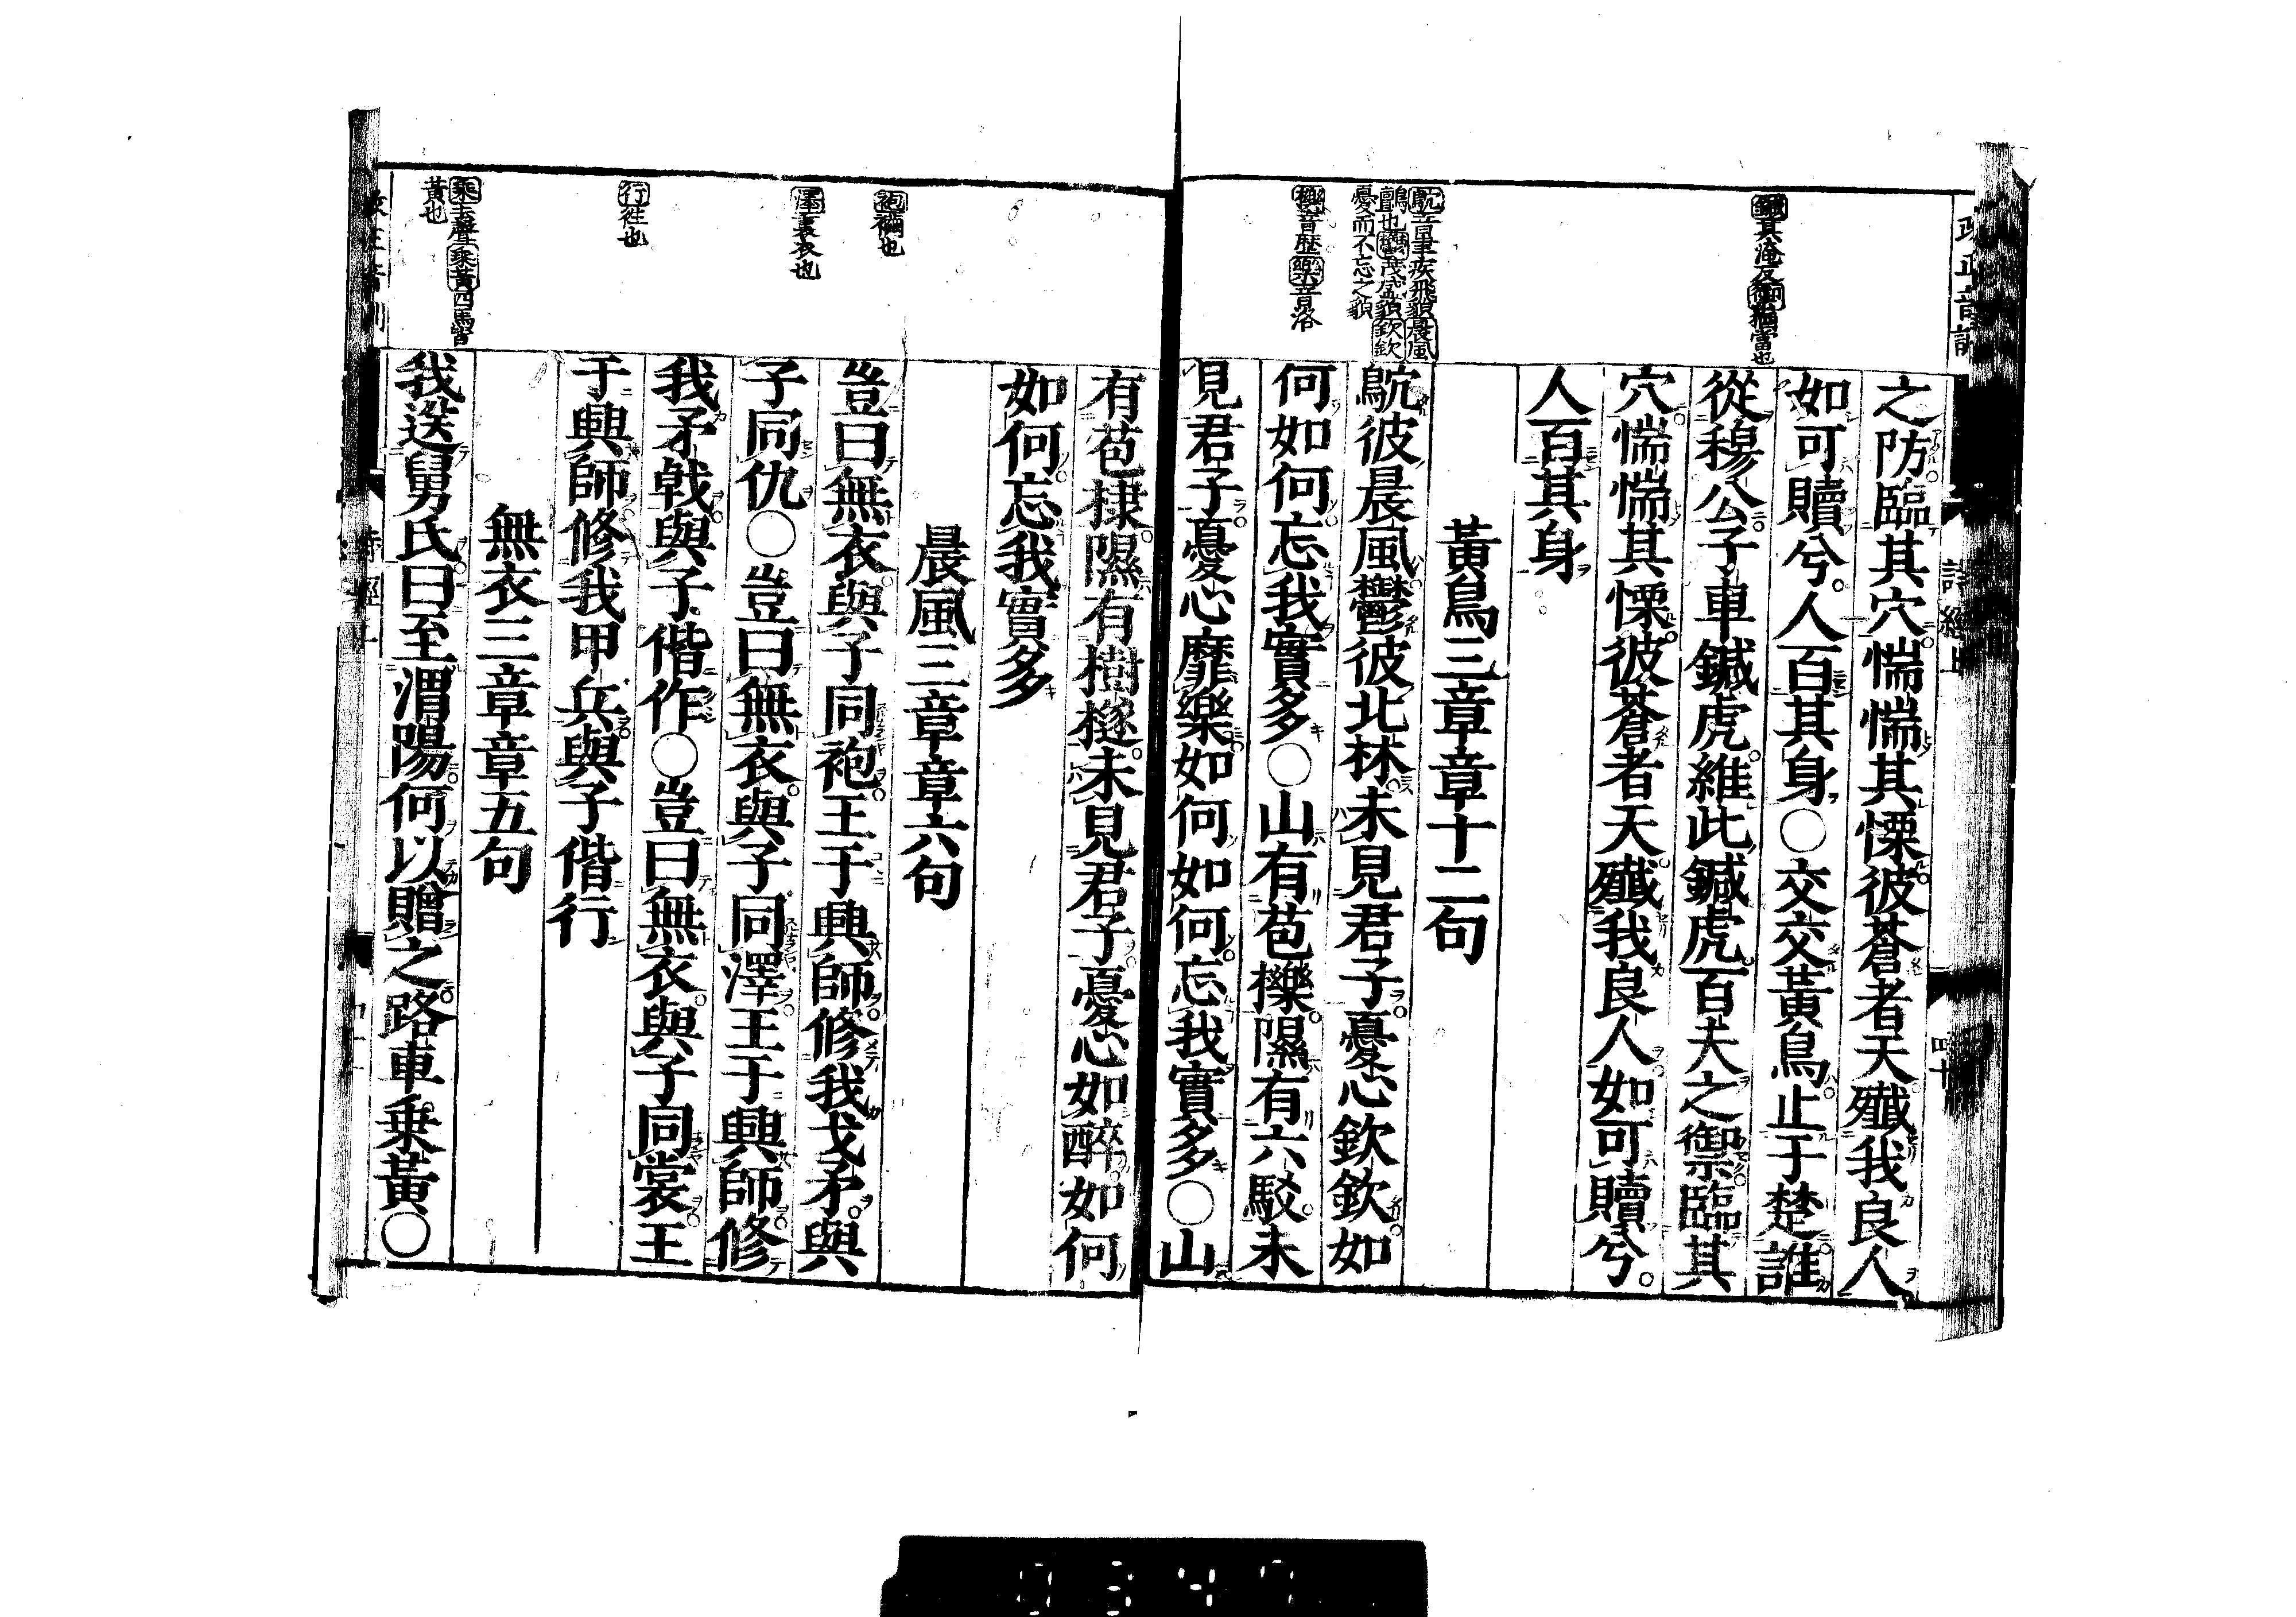 鍼其淹反禦猶當也
鴥音聿疾飛貌晨風
鸇也鬱茂盛貌欽欽
憂而不忘之貌
櫟音歴樂音洛
詩經上
之防臨其穴惴惴其慄彼蒼者天殲我良人
如可贖兮人百其身○交交黃鳥止于楚誰
從穆公子車鍼虎維此鍼虎百夫之禦臨其
穴惴惴其慄彼蒼者天殲我良人如可贖兮
人百其身
黃鳥三章章十二句
鴥彼晨風鬱彼北林未見君子憂心欽欽如
何如何忘我實多○山有苞櫟隰有六駁未
見君子憂心靡樂如何如何忘我實多○山
有苞棣隰有樹檖未見君子憂心如醉如何
如何忘我實多
晨風三章章六句
豈曰無衣與子同袍王于興師修我戈矛與
子同仇○豈曰無衣與子同澤王于興師修
我矛戟與子偕作○豈曰無衣與子同裳王
于興師修我甲兵與子偕行
無衣三章章五句
我送舅氏曰至渭陽何以贈之路車乗黃○
袍襺也
澤裏衣也
行徃也
乘去聲乘黃四馬皆
黃也